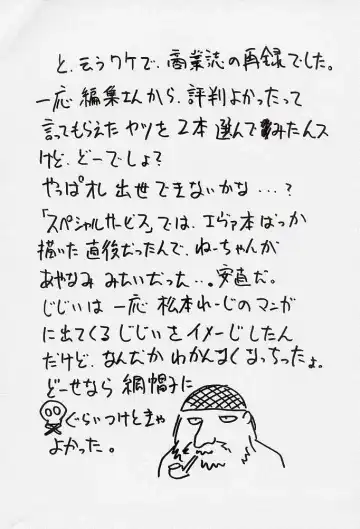 と、云うワケで、商業誌の再録でした。
一応 編集さんから、評判よかったって
言ってもらえたヤツを2本 選んでみたんス
けど、どーでしょ?
やっぱオレ 出世できないかな…?
「スペシャルサービス」では、エヴァ本ばっか
描いた 直後だったんで、ねーちゃんが
あやなみ みたいだった…。安直だ。
じじいは 一応 松本れーじのマンガ
に出てくる じじいをイメージしたん
だけど、なんだか わかんなくなっちったょ。
どーせなら 網帽子に
ぐらい つけときゃ
よかった。